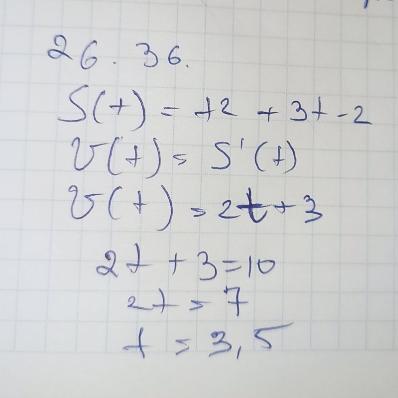 26.36.
S(t) = t2 + 3t - 2
v(t) = S'(t)
v(t) = 2t + 3
2t + 3 = 10
2t = 7
t = 3,5